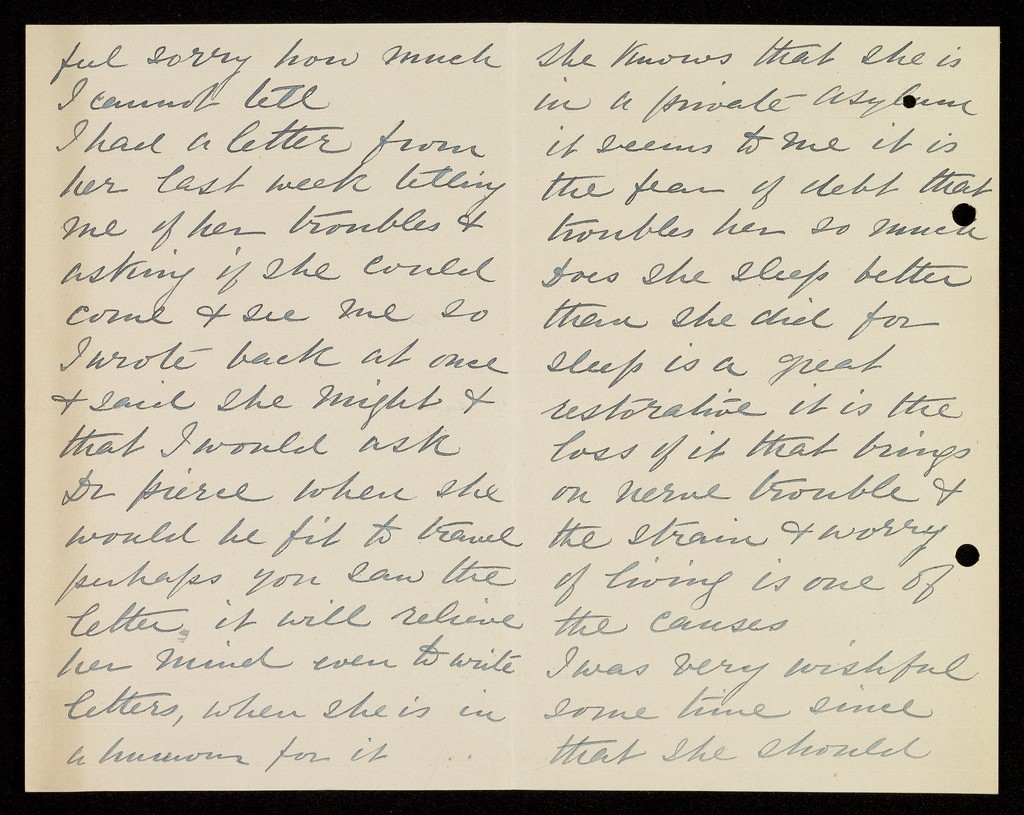 feel sorry how much
I cannot tell
I had a letter from
her last week telling
me of her troubles &
asking if she could
come & see me so
I wrote back at once
& said she might &
that I would ask
Dr Pierce when she
would be fit to travel
perhaps you saw the
letter, it will relieve
her mind even to write
letters, when she is in
a humour for it
she knows that she is
in a private asylum
it seems to me it is
the fear of debt that
troubles her so much
Does she sleep better
than she did for
sleep is a great
restorative it is the
loss of it that brings
on nerve trouble &
the strain & worry
of living is one of
the causes
I was very wishful
some time since
that she should